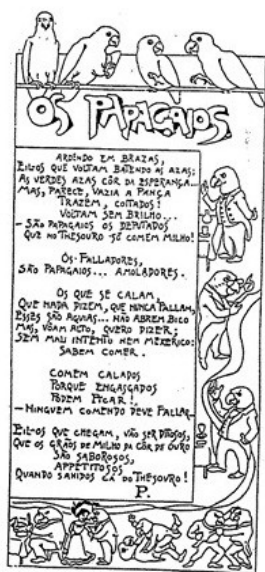 OS PAPAGAIOS.
ARDENDO EM BRAZAS,
EIL-OS QUE VOLTAM BATENDO AS AZAS:
AS VERDES AZAS CÔR DA ESPERANÇA...
MAS, PARECE, VAZIA A PANÇA
TRAZEM, COITADOS!
VOLTAM SEM BRILHO...
– SÃO PAPAGAIOS OS DEPUTADOS
QUE NO THESOURO SÓ COMEM MILHO!
OS FALLADORES,
SÃO PAPAGAIOS... AMOLADORES.
OS QUE SE CALAM,
QUE NADA DIZEM, QUE NUNCA FALLAM,
ESSES SÃO AGUIAS... NÃO ABREM BICO
MAS, VÔAM ALTO, QUERO DIZER;
SEM MAU INTENTO NEM MEXERICO:
SABEM COMER.
COMEM CALADOS
PORQUE ENGASGADOS
PODEM FICAR!,
– NINGUEM COMENDO DEVE FALLAR –
EIL-OS QUE CHEGAM, VÃO SER DITOSOS,
QUE OS GRÃOS DE MILHO DA CÔR DE OURO
SÃO SABOROSOS,
APPETITOSOS
QUANDO SAHIDOS CÁ DO THESOURO!
P.